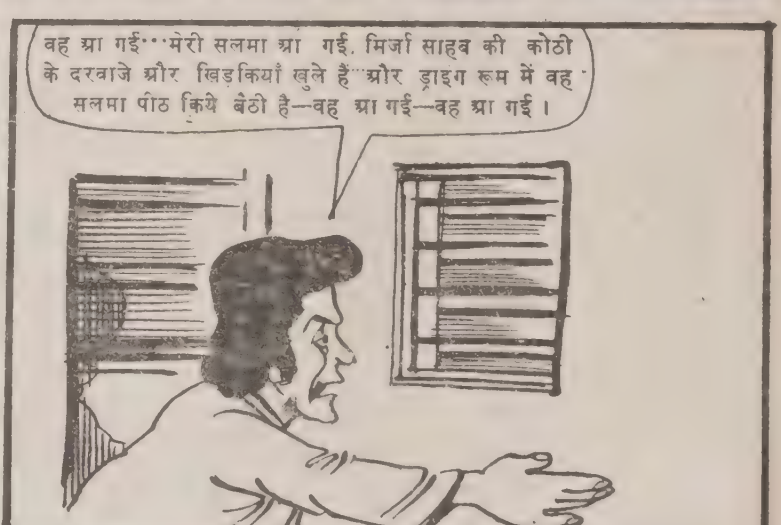 वह आ गई···मेरी सलमा आ गई. मिर्जा साहब की कोठी
के दरवाजे और खिड़कियाँ खुले हैं···और ड्राइग रूम में वह
सलमा पीठ किये बैठी है—वह आ गई—वह आ गई ।